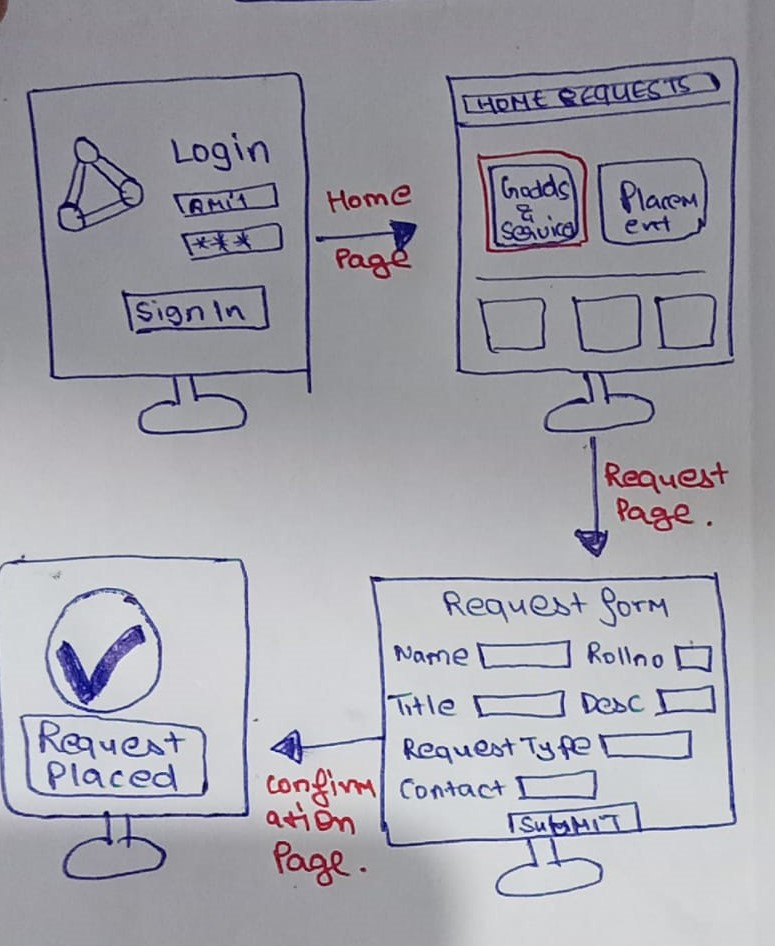 Login
AMIT
***
Sign In
Home
Page
HOME REQUESTS
Goods
&
Service
Placem
ent
Request
Page.
Request form
Name
Rollno
Title
Desc
Request Type
Contact
SubMIT
Confirm
ation
Page.
Request
Placed